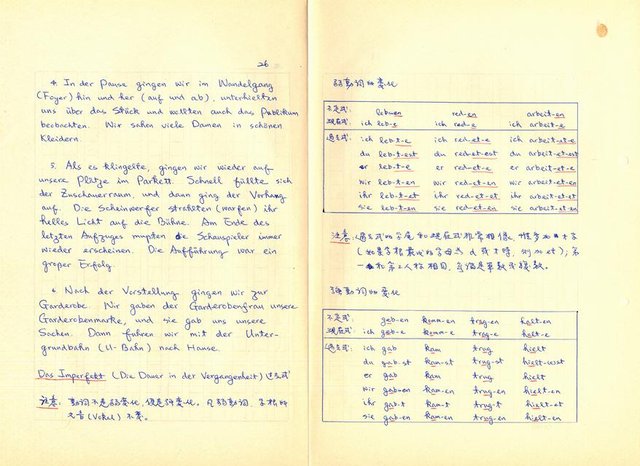 26
4. In der Pause gingen wir im Wandelgang
(Foyer) hin und her (auf und ab), unterhielten
uns über das Stück und wollten auch das Publikum
beobachten. Wir sahen viele Damen in schönen
Kleidern.
5. Als es klingelte, gingen wir wieder auf
unsere Plätze im Parkett. Schnell füllte sich
der Zuschauerraum, und dann ging der Vorhang
auf. Die Scheinwerfer strahlten (warfen) ihr
helles Licht auf die Bühne. Am Ende des
letzten Aufzuges mußten die Schauspieler immer
wieder erscheinen. Die Aufführung war ein
großer Erfolg.
6. Nach der Vorstellung gingen wir zur
Garderobe. Wir gaben der Garderobenfrau unsere
Garderobenmarke, und sie gab uns unsere
Sachen. Dann fuhren wir mit der Unter-
grundbahn (U-Bahn) nach Hause.
Das Imperfekt (Die Dauer in der Vergangenheit) 过去式
注意: 動词不是弱変化,
(Vokal) 不変。
弱動词的変化
不定式: leb-en red-en arbeit-en
現在式: ich leb-e ich red-e ich arbeit-e
過去式: ich leb-t-e ich red-et-e ich arbeit-et-e
du leb-t-est du red-et-est du arbeit-et-est
er leb-t-e er red-et-e er arbeit-et-e
wir leb-t-en wir red-et-en wir arbeit-et-en
ihr leb-t-et ihr red-et-et ihr arbeit-et-et
sie leb-t-en sie red-et-en sie arbeit-et-en
注意: 過去式的字尾和現在式
d 或 t 時, 則加 et);第
一和第三人称相同,
強動词的変化
不定式: geb-en komm-en trag-en halt-en
現在式: ich geb-e komm-e trag-e halt-e
過去式: ich gab kam trug hielt
du gab-st kam-st trug-st hielt-est
er gab kam trug hielt
wir gab-en kam-en trug-en hielt-en
ihr gab-t kam-t trug-t hielt-et
sie gab-en kam-en trug-en hielt-en